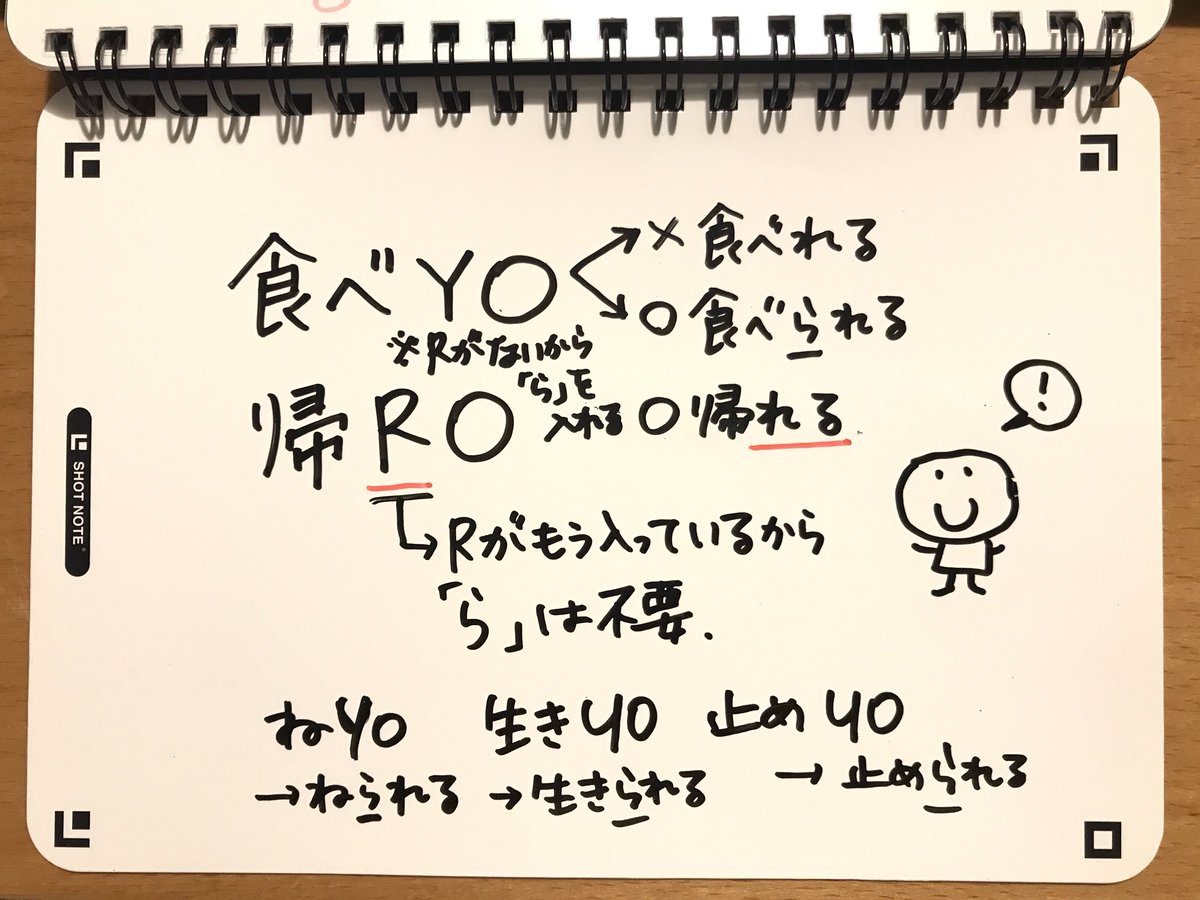 食べYO
×食べれる
○食べられる
※Rがないから
「ら」を
入れる
帰RO
○帰れる
!
Rがもう入っているから
「ら」は不要.
ねYO 生きYO 止めYO
→ねられる →生きられる →止められる
SHOT NOTE